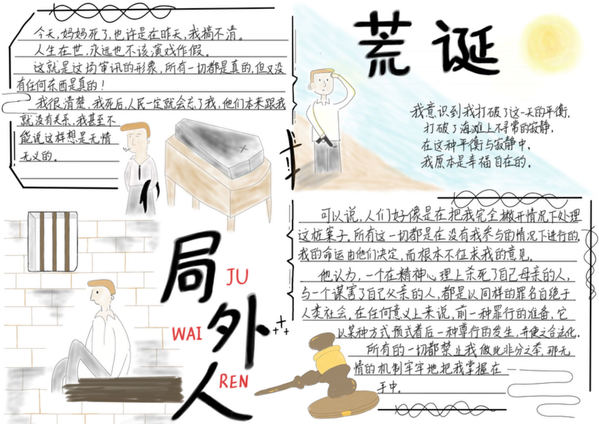 今天,妈妈死了,也许是在昨天,我搞不清。
人生在世,永远也不该演戏作假。
这就是这场审讯的形象,所有一切都是真的,但又没
有任何东西是真的!
我很清楚,我死后,人民一定就会忘了我,他们本来跟我
就没有关系,我甚至不
能说这样想是无情
无义的。
荒诞
我意识到我打破了这一天的平衡,
打破了海滩上不寻常的寂静,
在这种平衡与寂静中,
我原本是幸福自在的。
局外人
JU
WAI
REN
可以说,人们好像是在把我完全撇开情况下处理
这桩案子。所有这一切都是在没有我参与的情况下进行的,
我的命运由他们决定,而根本不征求我的意见。
他认为,一个在精神心理上杀死了自己母亲的人,
与一个谋害了自己父亲的人,都是以同样的罪名自绝于
人类社会,在任何意义上来说,前一种罪行的准备,它
以某种方式预示着后一种罪行的发生,并使之合法化。
所有的一切都禁止我做此非分之举,那无
情的机制牢牢地把我掌握在
手中。